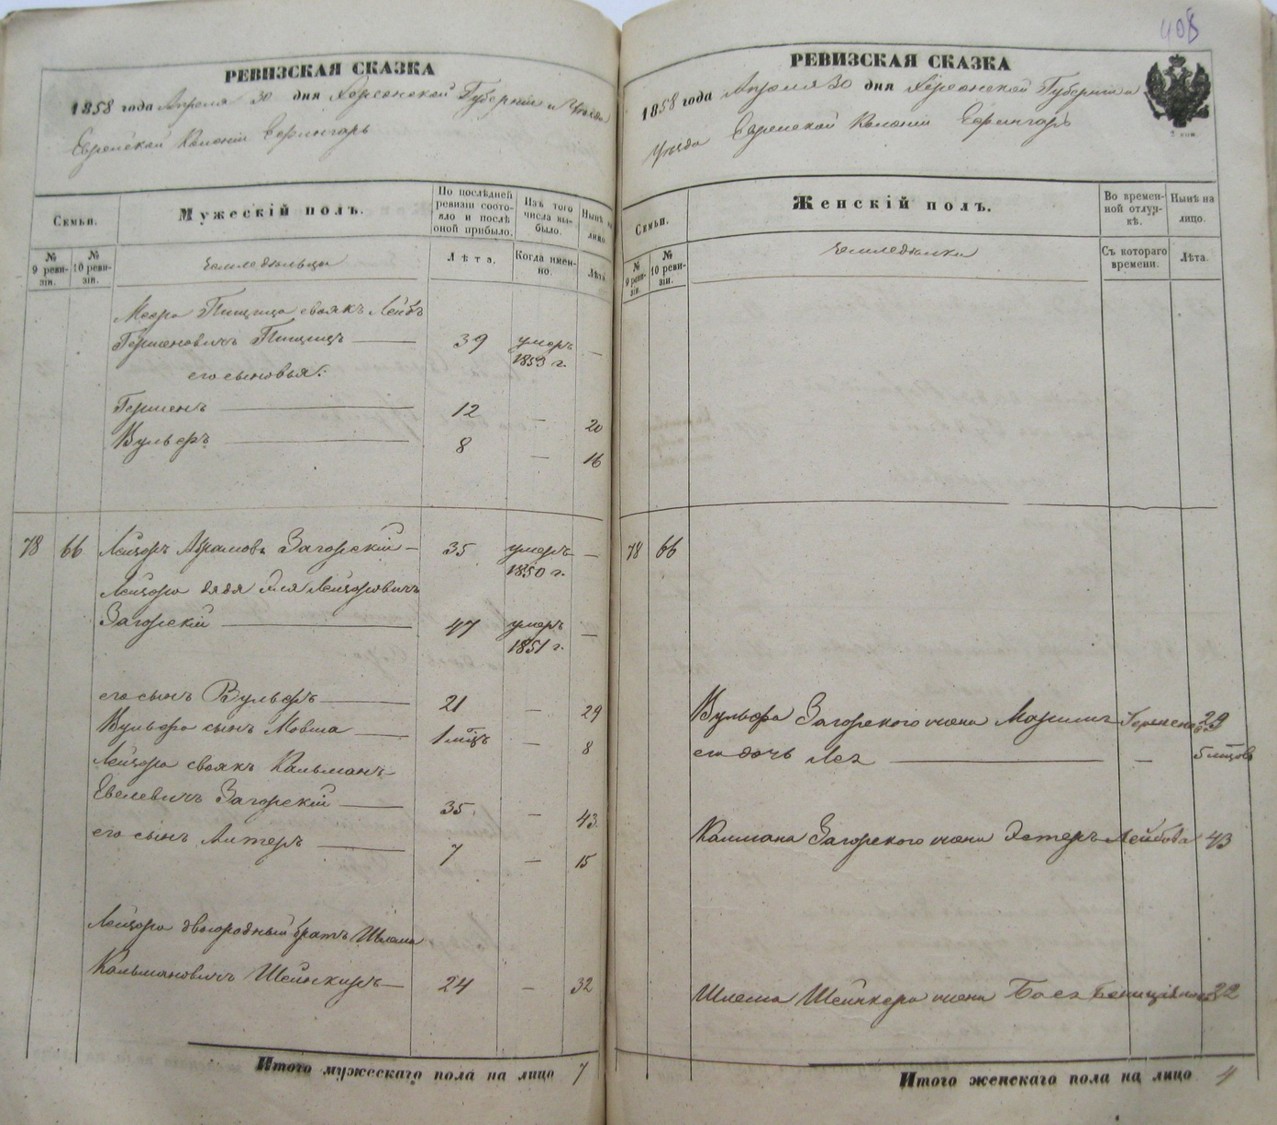 РЕВИЗСКАЯ СКАЗКА
1858 года Апреля 30 дня Херсонской Губернии и Уезда
Еврейской Колонии Ефингарь
Семьи.
Мужескій полъ.
По послѣдней ревизіи состояло и послѣ оной прибыло.
Изъ того числа выбыло.
Нынѣ на лицо.
№ 9 ревизіи.
№ 10 ревизіи.
Земледельцы
Лѣта.
Когда именно.
Лѣта.
Пищица своякъ Лейбъ
Гершеновичъ Пищицъ 39 умеръ 1853 г. —
его сыновья:
Гершенъ 12 — 20
Вульфъ 8 — 16
78 66 Лейзоръ Абрамовъ Загорскій 35 умеръ 1850 г. —
Лейзора дядя Эля Лейзоровичъ
Загорскій 47 умеръ 1851 г. —
его сынъ Вульфъ 21 — 29
Вульфа сынъ Мовша 1 мѣц — 8
Лейзора своякъ Кальманъ
Евелевичъ Загорскій 35 — 43
его сынъ Алтеръ 7 — 15
Лейзора двоюродный братъ Шлема
Кальмановичъ Шейнкеръ 24 — 32
Итого мужескаго пола на лицо 7
408
РЕВИЗСКАЯ СКАЗКА
1858 года Апреля 30 дня Херсонской Губерніи и
Уезда Еврейской Колонии Ефингарь
2 коп.
Семьи.
Женскій полъ.
Во временной отлучкѣ.
Нынѣ на лицо.
№ 9 ревизіи.
№ 10 ревизіи.
Земледелки
Съ котораго времени.
Лѣта.
78 66
Вульфа Загорского жена 29
ея дочь Лея — 5 мѣцов
Калмана Загорского жена Эстеръ Лейбова 43
Шлема Шейнкера жена 22
Итого женскаго пола на лицо 4